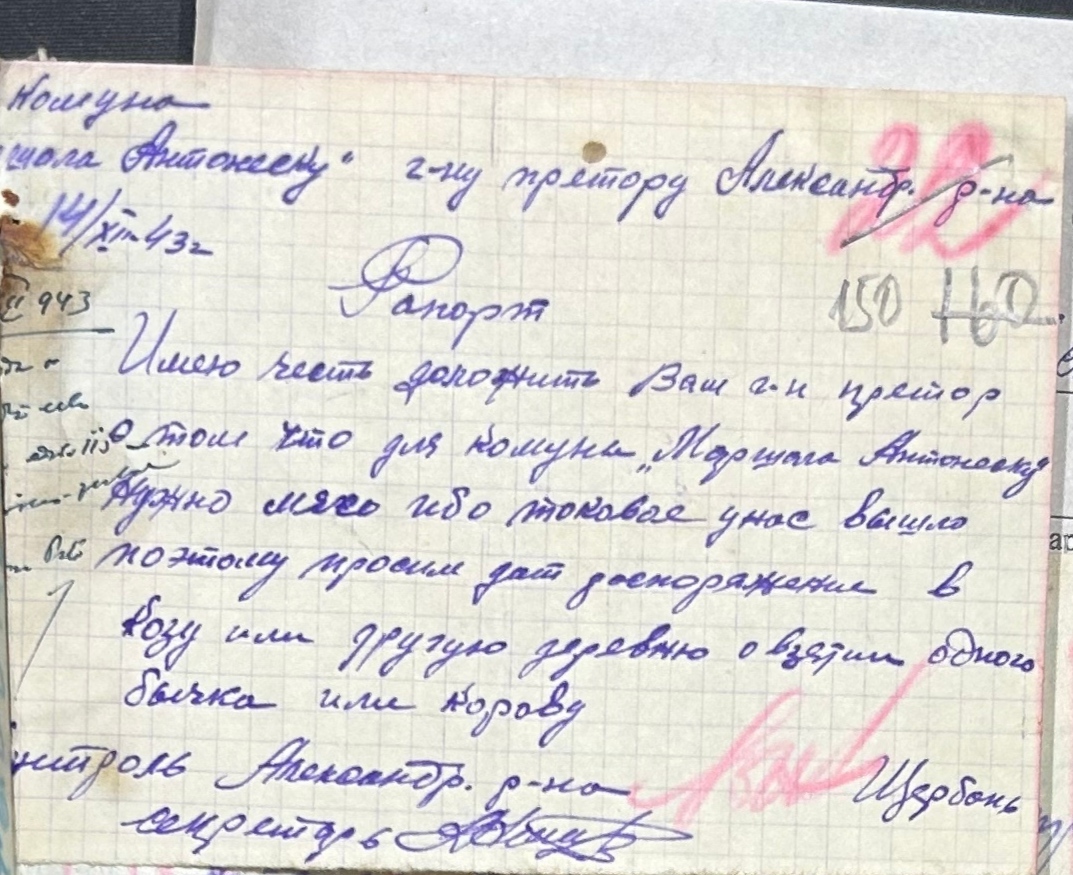 Комуна
шала Антонеску" г-ну претору Александр. р-на
14/XII-43г
22
Рапорт
150 160
943
Имею честь доложить Вам г-н претор
о том что для комуна „Маршала Антонеску"
нужно мясо ибо токовое унас вышло
поэтому просим дат роспоряжение в
Козу или другую деревню о взятии одного
бычка или корову
нтроль Александр. р-на Щербань
секретарь